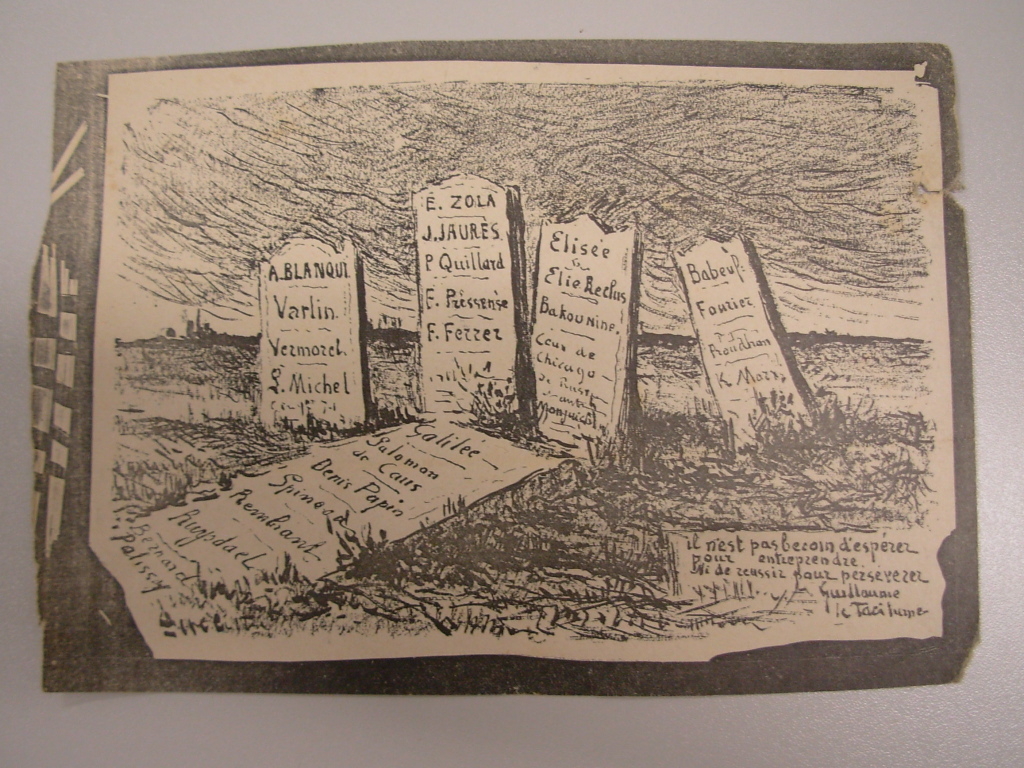 A. BLANQUI
Varlin
Vermorel
L. Michel
E. ZOLA
J. JAURÈS
P. Quillard
F. Préssensé
F. Ferrer
Elisée
& Elie Reclus
Bakounine
Ceux de
Chicago
de
Montjuich
Babeuf
Fourier
Proudhon
K. Marx
Galilée
Salomon
de Caus
Denis Papin
Spinoza
Rembrant
Ruysdael
Bernard
Palissy
il n'est pas becoin d'espérer
pour entreprendre.
Ni de reussir pour perseverer
Guillaume
le Taciturne